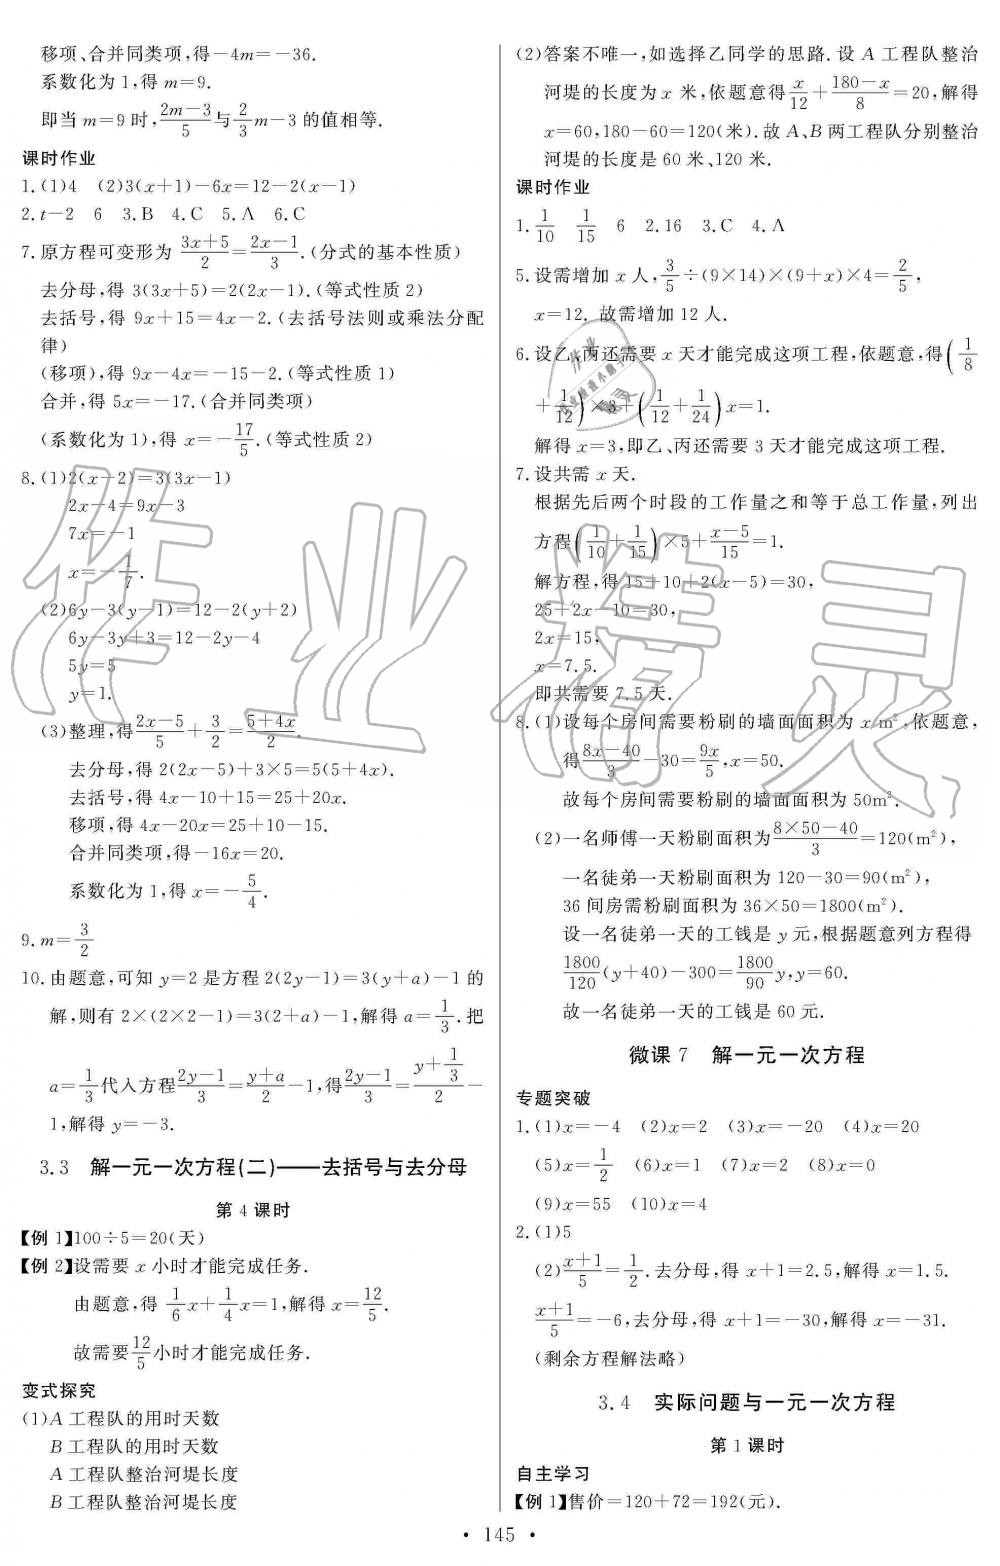 移项、合并同类项,得-4m=-36.
系数化为1,得 m=9.
即当 m=9 时,(2m-3)/5与2/3m-3 的值相等.
课时作业
1.(1)4 (2)3(x+1)-6x=12-2(x-1)
2.t-2 6 3.B 4.C 5.A 6.C
7.原方程可变形为 (3x+5)/2=(2x-1)/3.(分式的基本性质)
去分母,得 3(3x+5)=2(2x-1).(等式性质2)
去括号,得 9x+15=4x-2.(去括号法则或乘法分配
律)
(移项),得 9x-4x=-15-2.(等式性质1)
合并,得 5x=-17.(合并同类项)
(系数化为1),得 x=-17/5.(等式性质2)
8.(1)2(x-2)=3(3x-1)
2x-4=9x-3
7x=-1
x=-1/7.
(2)6y-3(y-1)=12-2(y+2)
6y-3y+3=12-2y-4
5y=5
y=1.
(3)整理,得(2x-5)/5+3/2=(5+4x)/2.
去分母,得 2(2x-5)+3×5=5(5+4x).
去括号,得 4x-10+15=25+20x.
移项,得 4x-20x=25+10-15.
合并同类项,得-16x=20.
系数化为1,得 x=-5/4.
9.m=3/2
10.由题意,可知 y=2 是方程 2(2y-1)=3(y+a)-1 的
解,则有 2×(2×2-1)=3(2+a)-1,解得 a=1/3.把
a=1/3代入方程(2y-1)/3=(y+a)/2-1,得(2y-1)/3=(y+1/3)/2-
1,解得 y=-3.
3.3 解一元一次方程(二)——去括号与去分母
第4课时
【例1】100÷5=20(天)
【例2】设需要 x 小时才能完成任务.
由题意,得 1/6x+1/4x=1,解得 x=12/5.
故需要12/5小时才能完成任务.
变式探究
(1)A 工程队的用时天数
B 工程队的用时天数
A 工程队整治河堤长度
B 工程队整治河堤长度
(2)答案不唯一,如选择乙同学的思路.设 A 工程队整治
河堤的长度为 x 米,依题意得x/12+(180-x)/8=20,解得
x=60,180-60=120(米).故 A、B 两工程队分别整治
河堤的长度是 60 米、120 米.
课时作业
1.1/10 1/15 6 2.16 3.C 4.A
5.设需增加 x 人,3/5÷(9×14)×(9+x)×4=2/5,
x=12. 故需增加 12 人.
6.设乙、丙还需要 x 天才能完成这项工程,依题意,得(1/8
+1/12)×3+(1/12+1/24)x=1.
解得 x=3,即乙、丙还需要 3 天才能完成这项工程.
7.设共需 x 天.
根据先后两个时段的工作量之和等于总工作量,列出
方程(1/10+1/15)×5+(x-5)/15=1.
解方程,得 15+10+2(x-5)=30,
25+2x-10=30,
2x=15,
x=7.5.
即共需要 7.5 天.
8.(1)设每个房间需要粉刷的墙面面积为 x m²,依题意,
得(8x-40)/3-30=9x/5,x=50.
故每个房间需要粉刷的墙面面积为 50m².
(2)一名师傅一天粉刷面积为(8×50-40)/3=120(m²),
一名徒弟一天粉刷面积为 120-30=90(m²),
36 间房需粉刷面积为 36×50=1800(m²).
设一名徒弟一天的工钱是 y 元,根据题意列方程得
1800/120(y+40)-300=1800/90y,y=60.
故一名徒弟一天的工钱是 60 元.
微课7 解一元一次方程
专题突破
1.(1)x=-4 (2)x=2 (3)x=-20 (4)x=20
(5)x=1/2 (6)x=1 (7)x=2 (8)x=0
(9)x=55 (10)x=4
2.(1)5
(2)(x+1)/5=1/2.去分母,得 x+1=2.5,解得 x=1.5.
(x+1)/5=-6,去分母,得 x+1=-30,解得 x=-31.
(剩余方程解法略)
3.4 实际问题与一元一次方程
第1课时
自主学习
【例1】售价=120+72=192(元).
• 145 •
作业精灵